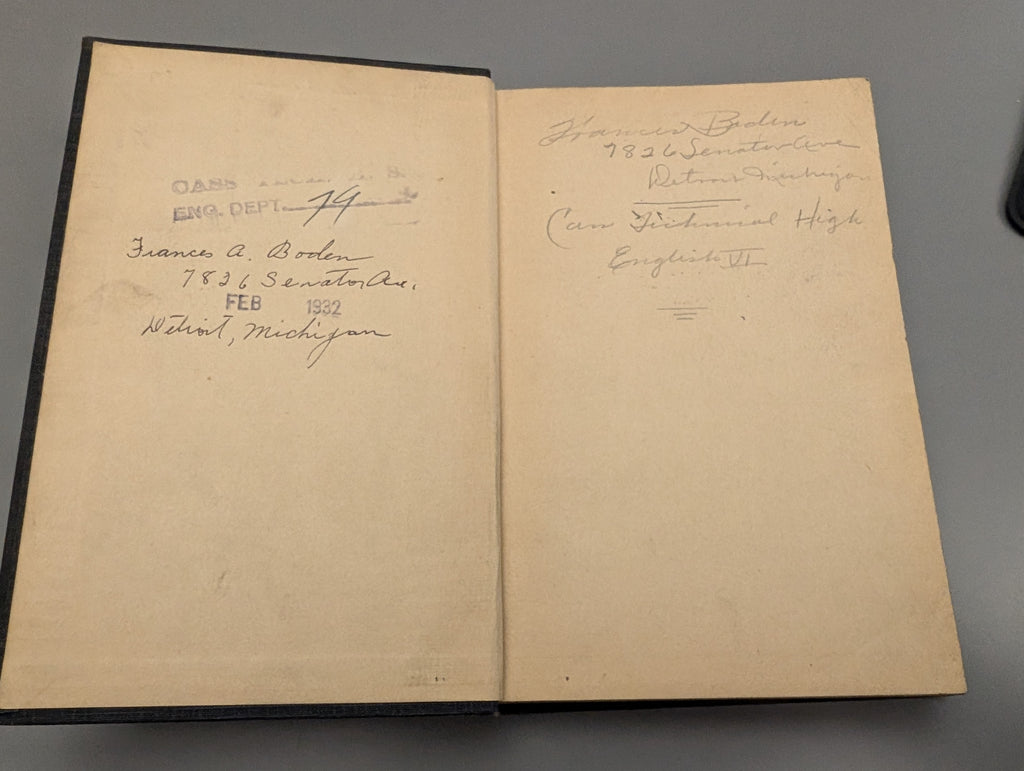 CASS
ENG. DEPT. 79
Frances A. Boden
7826 Senator Ave.
FEB 1932
Detroit, Michigan
Frances Boden
7826 Senator Ave
Detroit Michigan
Cass Technical High
English VI